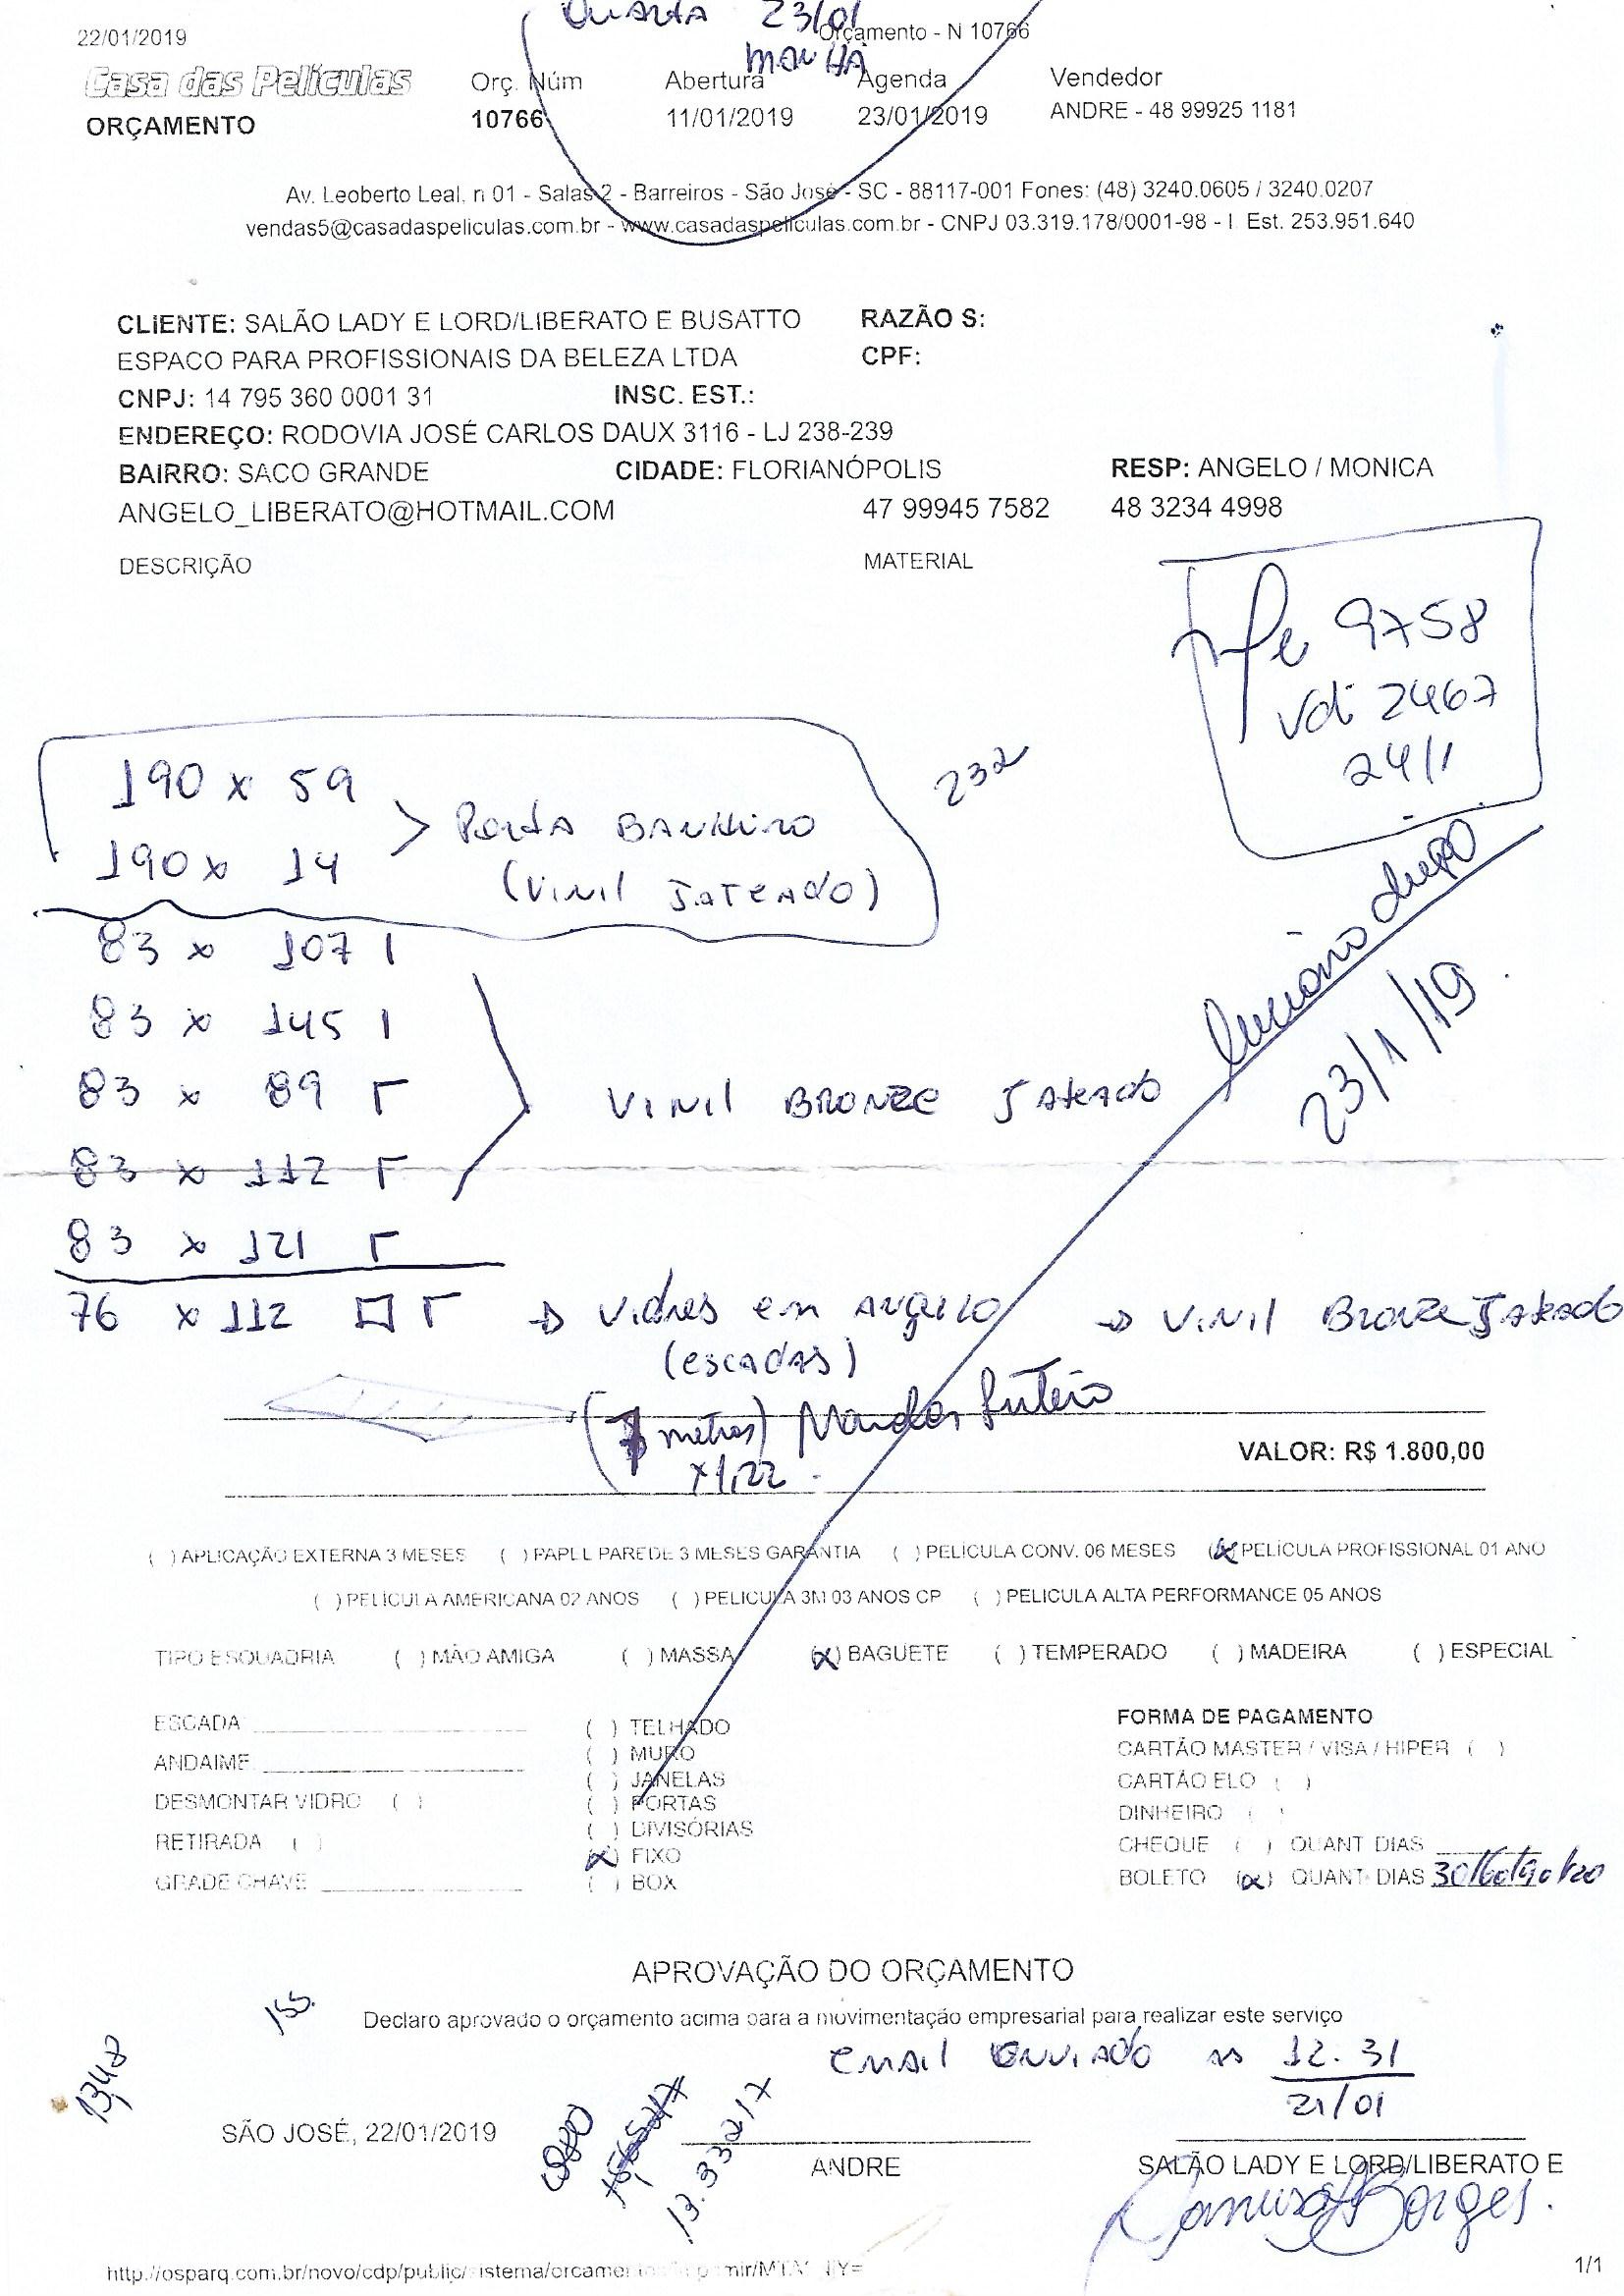 QUARTA 23/01
MANHÃ
22/01/2019 Orçamento - N 10766
Casa das Películas Orç. Núm Abertura Agenda Vendedor
ORÇAMENTO 10766 11/01/2019 23/01/2019 ANDRE - 48 99925 1181
Av. Leoberto Leal, n 01 - Salas 2 - Barreiros - São José - SC - 88117-001 Fones: (48) 3240.0605 / 3240.0207
vendas5@casadaspeliculas.com.br - www.casadaspeliculas.com.br - CNPJ 03.319.178/0001-98 - I. Est. 253.951.640
CLIENTE: SALÃO LADY E LORD/LIBERATO E BUSATTO RAZÃO S:
ESPACO PARA PROFISSIONAIS DA BELEZA LTDA CPF:
CNPJ: 14 795 360 0001 31 INSC. EST.:
ENDEREÇO: RODOVIA JOSÉ CARLOS DAUX 3116 - LJ 238-239
BAIRRO: SACO GRANDE CIDADE: FLORIANÓPOLIS RESP: ANGELO / MONICA
ANGELO_LIBERATO@HOTMAIL.COM 47 99945 7582 48 3234 4998
DESCRIÇÃO MATERIAL
nfe 9758
vdi 2467
24/1
190 x 59
232
PORTA BANHEIRO
190 x 14
(VINIL JATEADO)
83 x 107 1
83 x 145 1
83 x 89 Γ
VINIL BRONZE JATEADO
Luciano diego
23/1/19
83 x 112 Γ
83 x 121 Γ
76 x 112 □ Γ → vidros em ANGULO → VINIL BRONZE JATEADO
(escadas)
(7 metros) Mandar Inteiro
x1,22
VALOR: R$ 1.800,00
( ) APLICAÇÃO EXTERNA 3 MESES ( ) PAPEL PAREDE 3 MESES GARANTIA ( ) PELICULA CONV. 06 MESES (x) PELÍCULA PROFISSIONAL 01 ANO
( ) PELÍCULA AMERICANA 02 ANOS ( ) PELICULA 3M 03 ANOS CP ( ) PELICULA ALTA PERFORMANCE 05 ANOS
TIPO ESQUADRIA ( ) MÃO AMIGA ( ) MASSA (x) BAGUETE ( ) TEMPERADO ( ) MADEIRA ( ) ESPECIAL
ESCADA
ANDAIME
DESMONTAR VIDRO ( )
RETIRADA ( )
GRADE CHAVE
( ) TELHADO
( ) MURO
( ) JANELAS
( ) PORTAS
( ) DIVISÓRIAS
(x) FIXO
( ) BOX
FORMA DE PAGAMENTO
CARTÃO MASTER / VISA / HIPER ( )
CARTÃO ELO ( )
DINHEIRO ( )
CHEQUE ( ) QUANT DIAS
BOLETO (x) QUANT DIAS 30/60/90/120
APROVAÇÃO DO ORÇAMENTO
Declaro aprovado o orçamento acima para a movimentação empresarial para realizar este serviço
155
1348
email enviado as 12.31
21/01
SÃO JOSÉ, 22/01/2019
13.332/7
ANDRE SALÃO LADY E LORD/LIBERATO E
Borges
1/1